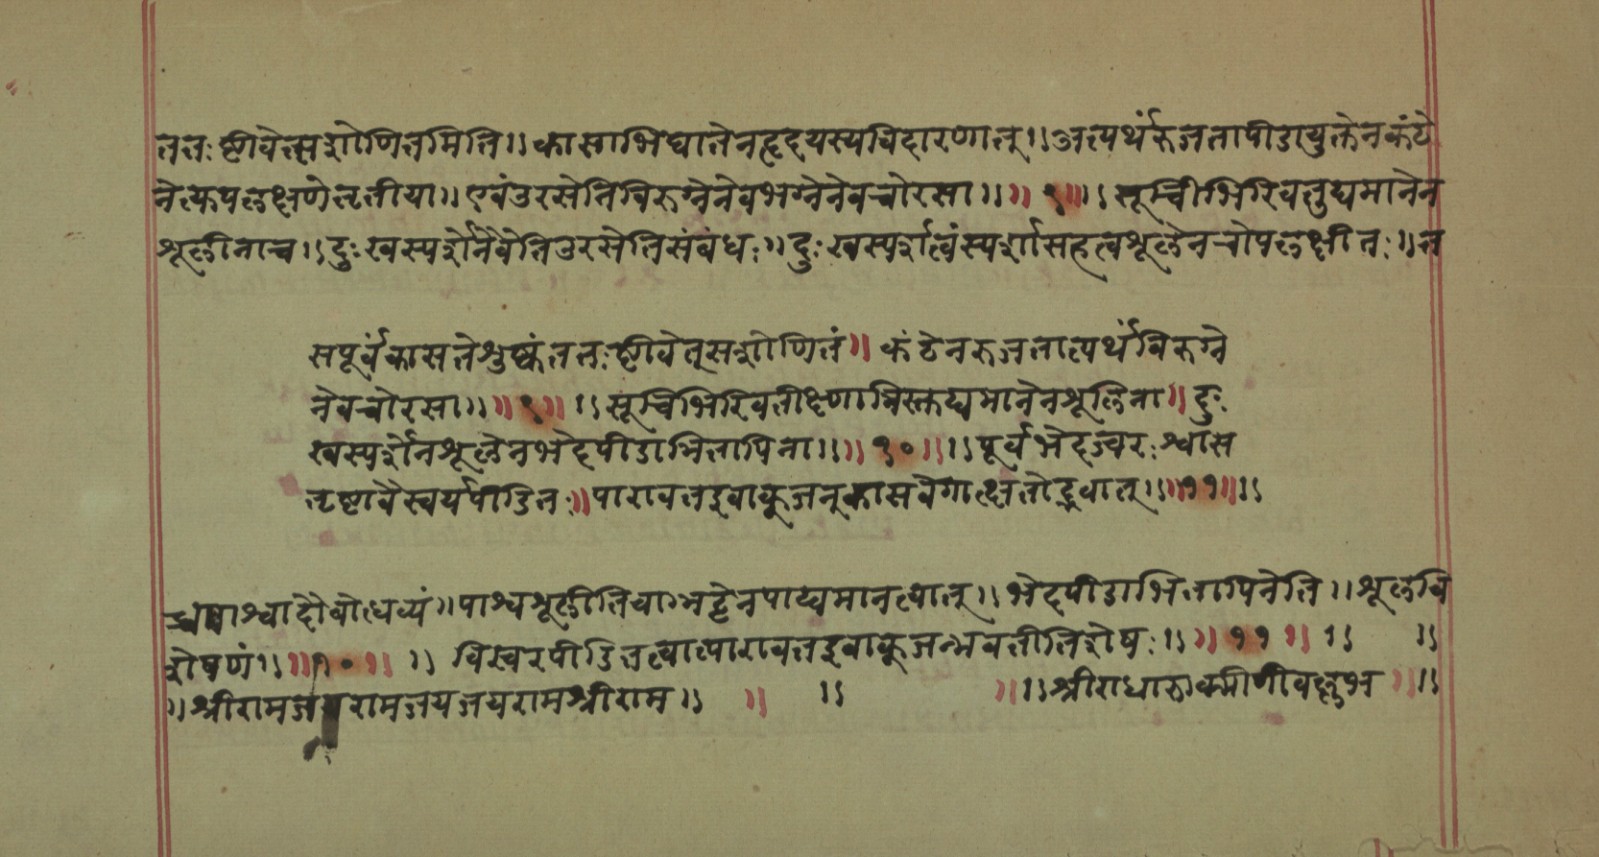 ततःष्टीवेत्सशोणितमिति॥कासाभिघातेनहृदयस्यविदारणात्॥अत्यर्थंरुजतापीडायुक्तेनकंठे
नेत्युपलक्षणेतृतीया॥एवंउरसेतिविरुग्नेनेवभग्नेनेवचोरसा॥॥९॥॥सूचीभिरिवतुद्यमानेन
शूलीनाच॥दुःखस्पर्शेनेवेतिउरसेतिसंबंधः॥दुःखस्पर्शत्वंस्पर्शासहत्वशूलेनचोपलक्षीतः॥त
सपूर्वंकासतेशुष्कंततःष्टीवेत्सशोणितं॥कंठेनरुजतात्यर्थंविरुग्ने
नेवचोरसा॥॥९॥॥सूचिभिरिवतीक्ष्णाभिस्तुद्यमानेनशूलिना॥दुः
खस्पर्शेनशूलेनभेदपीडाभितापिना॥॥१०॥॥पूर्वभेदज्वरःश्वास
तृष्टावैस्वर्यपीडितः॥पारावतइवाकूजन्कासवेगात्क्षतोद्भवात्॥॥११॥॥
बोत्धव्यं॥पाश्वशूलीतिवाग्भट्टेनपाठ्यमानत्वात्॥भेदपीडाभितापिनेति॥शूलवि
शेषणं॥॥१०॥॥विस्वरपीडितत्वात्पारावतइवाकूजन्भवतीतिशेषः॥॥११॥॥॥
॥श्रीरामजयरामजयजयरामश्रीराम॥॥॥॥॥श्रीराधा॥॥